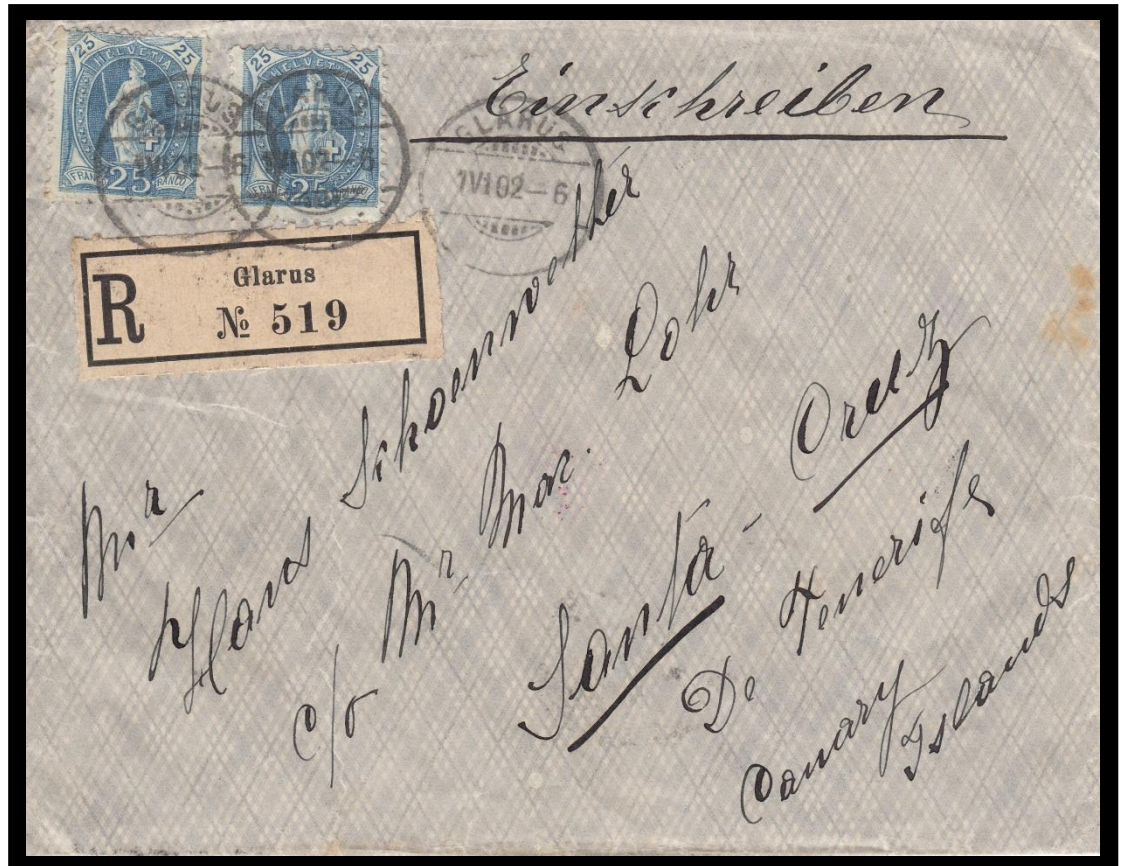 25 HELVETIA 25
FRANCO 25 FRANCO
25 HELVETIA 25
FRANCO 25
GLARUS
1 VI 02 - 6
GLARUS
1 VI 02 - 6
GLARUS
1 VI 02 - 6
Einschreiben
R Glarus
№ 519
Mr
Hans Schoenwether
c/o Mr Max. Lohr
Santa Cruz
De Tenerife
Canary
Islands